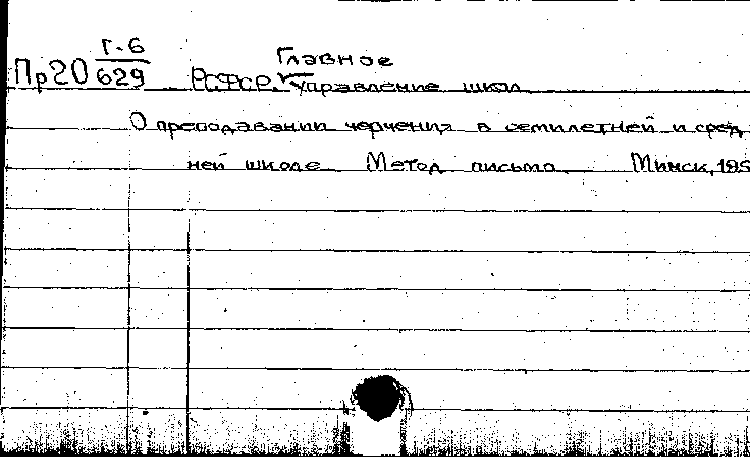 Г-6
Главное
Пр20 629 РСФСР. Управление школ
О преподавании черчения в семилетней и сред
ней школе Метод письмо Минск, 195